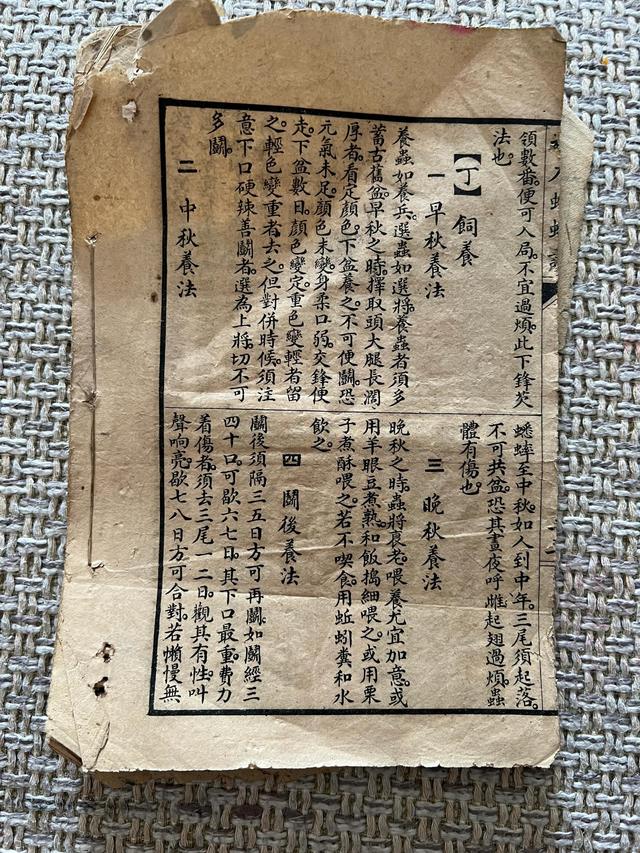 領數番便可入局。不宜過煩。此下鋒芡
法也。
【丁】 飼養
一 早秋養法
養蟲如養兵。選蟲如選將。養蟲者須多
蓄古舊盆。早秋之時。擇取頭大腿長濶
厚者。看定顏色。下盆養之。不可便鬪。恐
元氣未足。顏色未變。身柔口弱。交鋒便
走。下盆數日。顏色變定。重色變輕者留
之。輕色變重者去之。但對併時候。須注
意下口硬辣善鬪者。選為上將。切不可
多鬪。
二 中秋養法
蟋蟀至中秋。如人到中年。三尾須起落。
不可共盆。恐其晝夜呼雌。起翅過煩。蟲
體有傷也。
三 晚秋養法
晚秋之時。蟲將衰老。喂養尤宜加意。或
用羊眼豆煮熟。和飯搗細喂之。或用栗
子煮酥喂之。若不喫食。用蚯蚓糞和水
飲之。
四 鬪後養法
鬪後須隔三五日。方可再鬪。如鬪經三
四十口。可歇六七日。其下口最重。費力
着傷者。須去三尾一二日。觀其有性。叫
聲响亮。歇七八日方可合對。若懶慢無